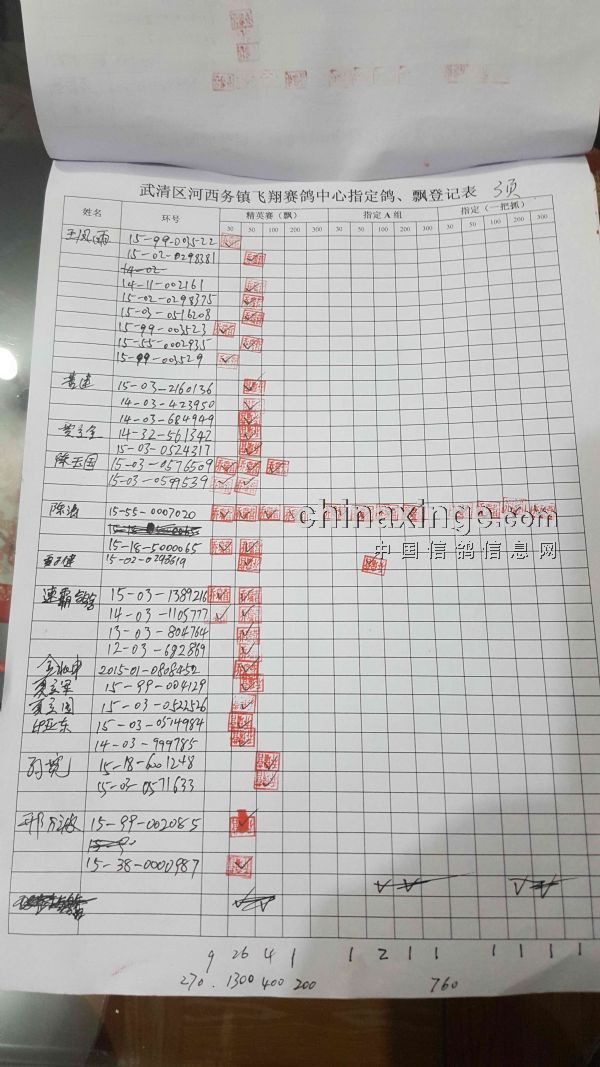 武清区河西务镇飞翔赛鸽中心指定鸽、飘登记表 3页
姓名 环号 精英赛（飘） 指定 A 组 指定（一把抓）
30 50 100 200 300 30 50 100 200 300 30 50 100 200 300
王凤雨 15-99-003522
15-02-0298381
14-02-
14-11-002161
15-02-0298375
15-03-0516208
15-99-003523
15-55-0002935
15-99-003529
15-03-2160136
14-03-423950
14-03-684949
14-32-561342
15-03-0524317
陈玉国 15-03-0576509
15-03-0599539
陈涛 15-55-0007020
15-18-5000065
15-02-0298619
连霸鸽舍 15-03-1389216
14-03-1105777
13-03-804764
12-03-692869
2015-01-0808452
夏立军 15-99-004129
夏立国 15-03-0522526
伊亚东 15-03-0514984
14-03-999785
15-18-6001248
15-03-0571633
15-99-002085
15-38-0000987
9 26 4 1 1 2 1 1 1 1 1 1
270. 1300 400 200 760
chinaxinge.com
中国信鸽信息网